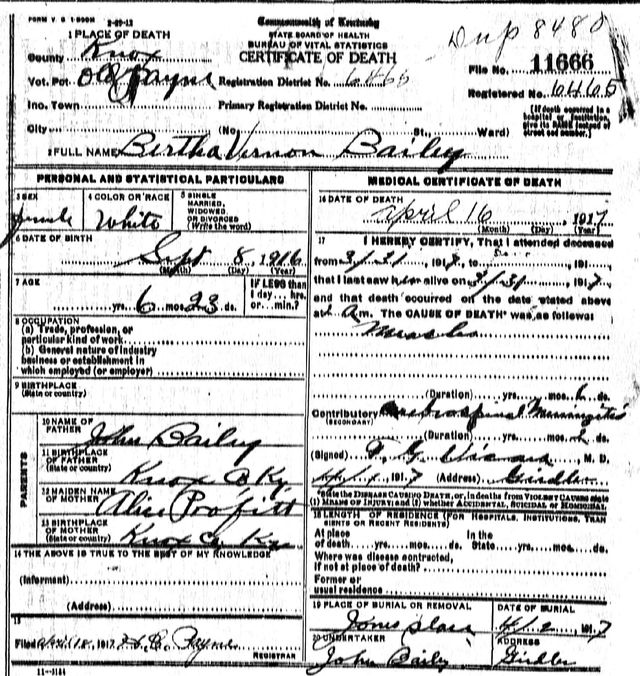 FORM V. S. 1-500M 2-27-12
Commonwealth of Kentucky
STATE BOARD OF HEALTH
BUREAU OF VITAL STATISTICS
CERTIFICATE OF DEATH
Dup 8480
1 PLACE OF DEATH
County Knox
Vot. Pct Old Payne Registration District No. 6465
File No. 11666
Registered No. 6465
Inc. Town Primary Registration District No.
[If death occurred in a hospital or institution, give its NAME instead of street and number.]
City (No. St., Ward)
2 FULL NAME Bertha Vernon Bailey
PERSONAL AND STATISTICAL PARTICULARS
3 SEX female
4 COLOR OR RACE White
5 SINGLE MARRIED, WIDOWED OR DIVORCED (Write the word)
6 DATE OF BIRTH Sept 8, 1916
(Month) (Day) (Year)
7 AGE yrs. 6 mos. 23 ds.
IF LESS than 1 day... hrs. or... min.?
8 OCCUPATION
(a) Trade, profession, or particular kind of work
(b) General nature of industry business or establishment in which employed (or employer)
9 BIRTHPLACE (State or country)
PARENTS
10 NAME OF FATHER John Bailey
11 BIRTHPLACE OF FATHER (State or country) Knox Co Ky
12 MAIDEN NAME OF MOTHER Alice Proffitt
13 BIRTHPLACE OF MOTHER (State or country) Knox Co Ky
14 THE ABOVE IS TRUE TO THE BEST OF MY KNOWLEDGE
(Informant)
(Address)
15
Filed April 18, 1917 Payne
REGISTRAR
11-3184
MEDICAL CERTIFICATE OF DEATH
16 DATE OF DEATH April 16, 1917
(Month) (Day) (Year)
17 I HEREBY CERTIFY, That I attended deceased
from 3/31, 1917, to 191
that I last saw her alive on 3/31, 1917,
and that death occurred on the date stated above
at A m. The CAUSE OF DEATH was as follows:
Measles
(Duration) yrs. mos. ds.
Contributory Cerebrospinal Meningitis
(SECONDARY)
(Duration) yrs. mos. ds.
(Signed) M. D.
1917 (Address) Girdler
State the DISEASE CAUSING DEATH, or, in deaths from VIOLENT CAUSES state (1) MEANS OF INJURY; and (2) whether ACCIDENTAL, SUICIDAL or HOMICIDAL.
18 LENGTH OF RESIDENCE (FOR HOSPITALS, INSTITUTIONS, TRANSIENTS OR RECENT RESIDENTS)
At place of death yrs. mos. ds. In the State yrs. mos. ds.
Where was disease contracted, if not at place of death?
Former or usual residence
19 PLACE OF BURIAL OR REMOVAL Jones place
DATE OF BURIAL 1917
20 UNDERTAKER John Baily
ADDRESS Girdler